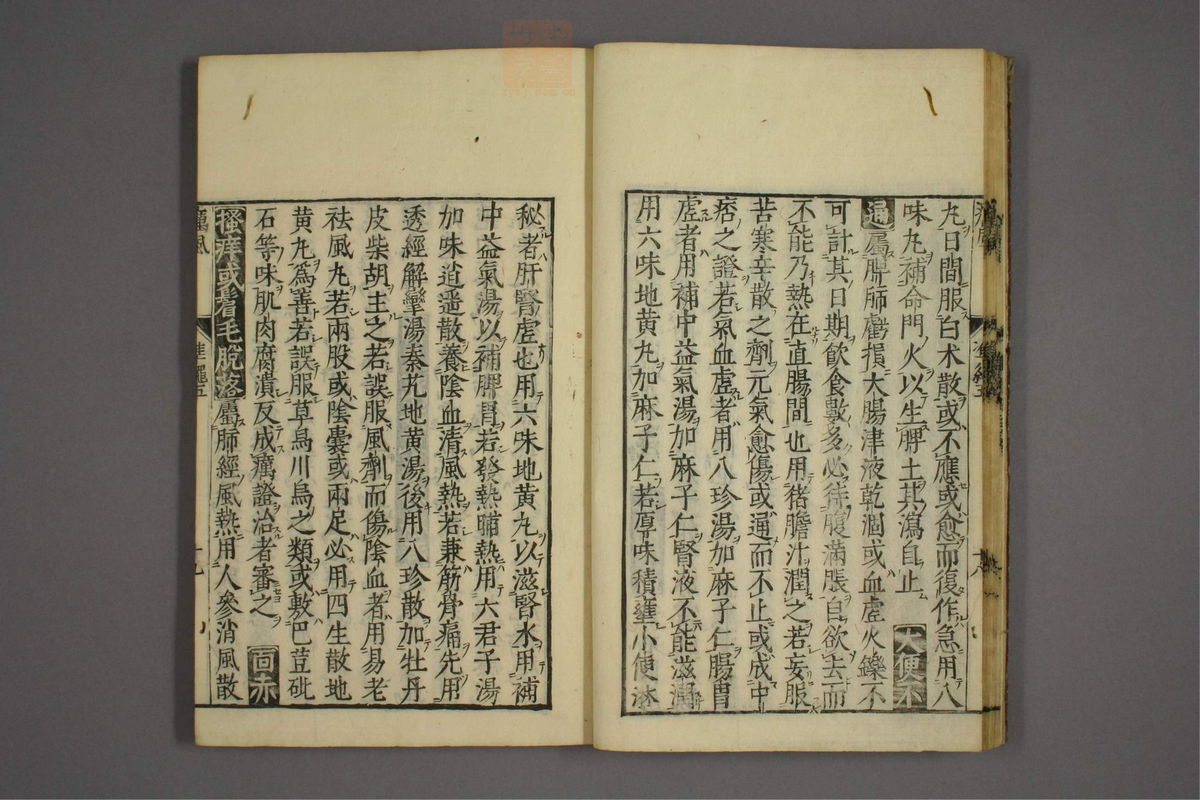 丸日間服白术散或不應或愈而復作急用八
味丸補命門火以生脾土其瀉自止 大便不
通屬脾肺虧損大腸津液乾涸或血虛火鑠不
可計其日期飲食數多必待腹滿脹自欲去而
不能乃熱在直腸間也用猪膽汁潤之若妄服
苦寒辛散之劑元氣愈傷或通而不止或成中
痞之證若氣血虛者用八珍湯加麻子仁腸胃
虛者用補中益氣湯加麻子仁腎液不能滋潤
用六味地黄丸加麻子仁若厚味積壅小便淋
秘者肝腎虛也用六味地黄丸以滋腎水用補
中益氣湯以補脾胃若發熱晡熱用六君子湯
加味逍遥散養陰血清風熱若兼筋骨痛先用
透經解攣湯秦艽地黄湯後用八珍散加牡丹
皮柴胡主之若誤服風劑而傷陰血者用易老
祛風丸若兩股或陰囊或兩足必用四生散地
黄丸為善若誤服草烏川烏之類或敷巴荳砒
石等味肌肉腐潰反成癘證治者審之 面赤
搔痒或眉毛脱落屬肺經風熱用人參消風散
癘風